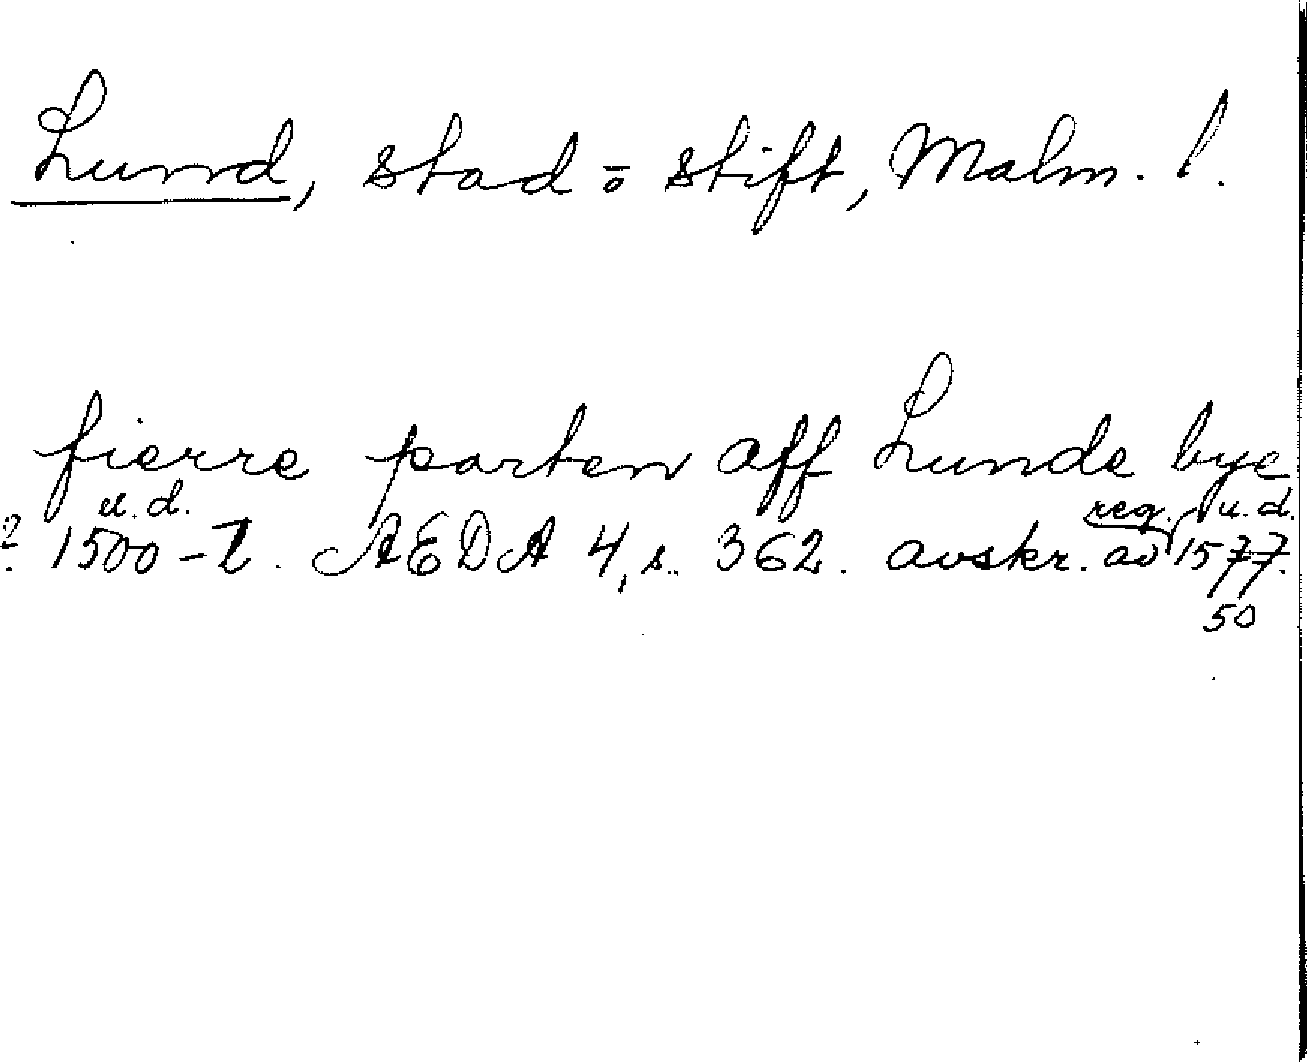 Lund, stad o stift, Malm. l.
fierre parten aff Lunde bye
u. d. reg. u. d.
? 1500-t. AEDA 4, s. 362. avskr. av 1577.
50